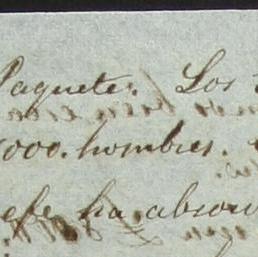 Paquete. Los
000. hombres.
efe ha absorv